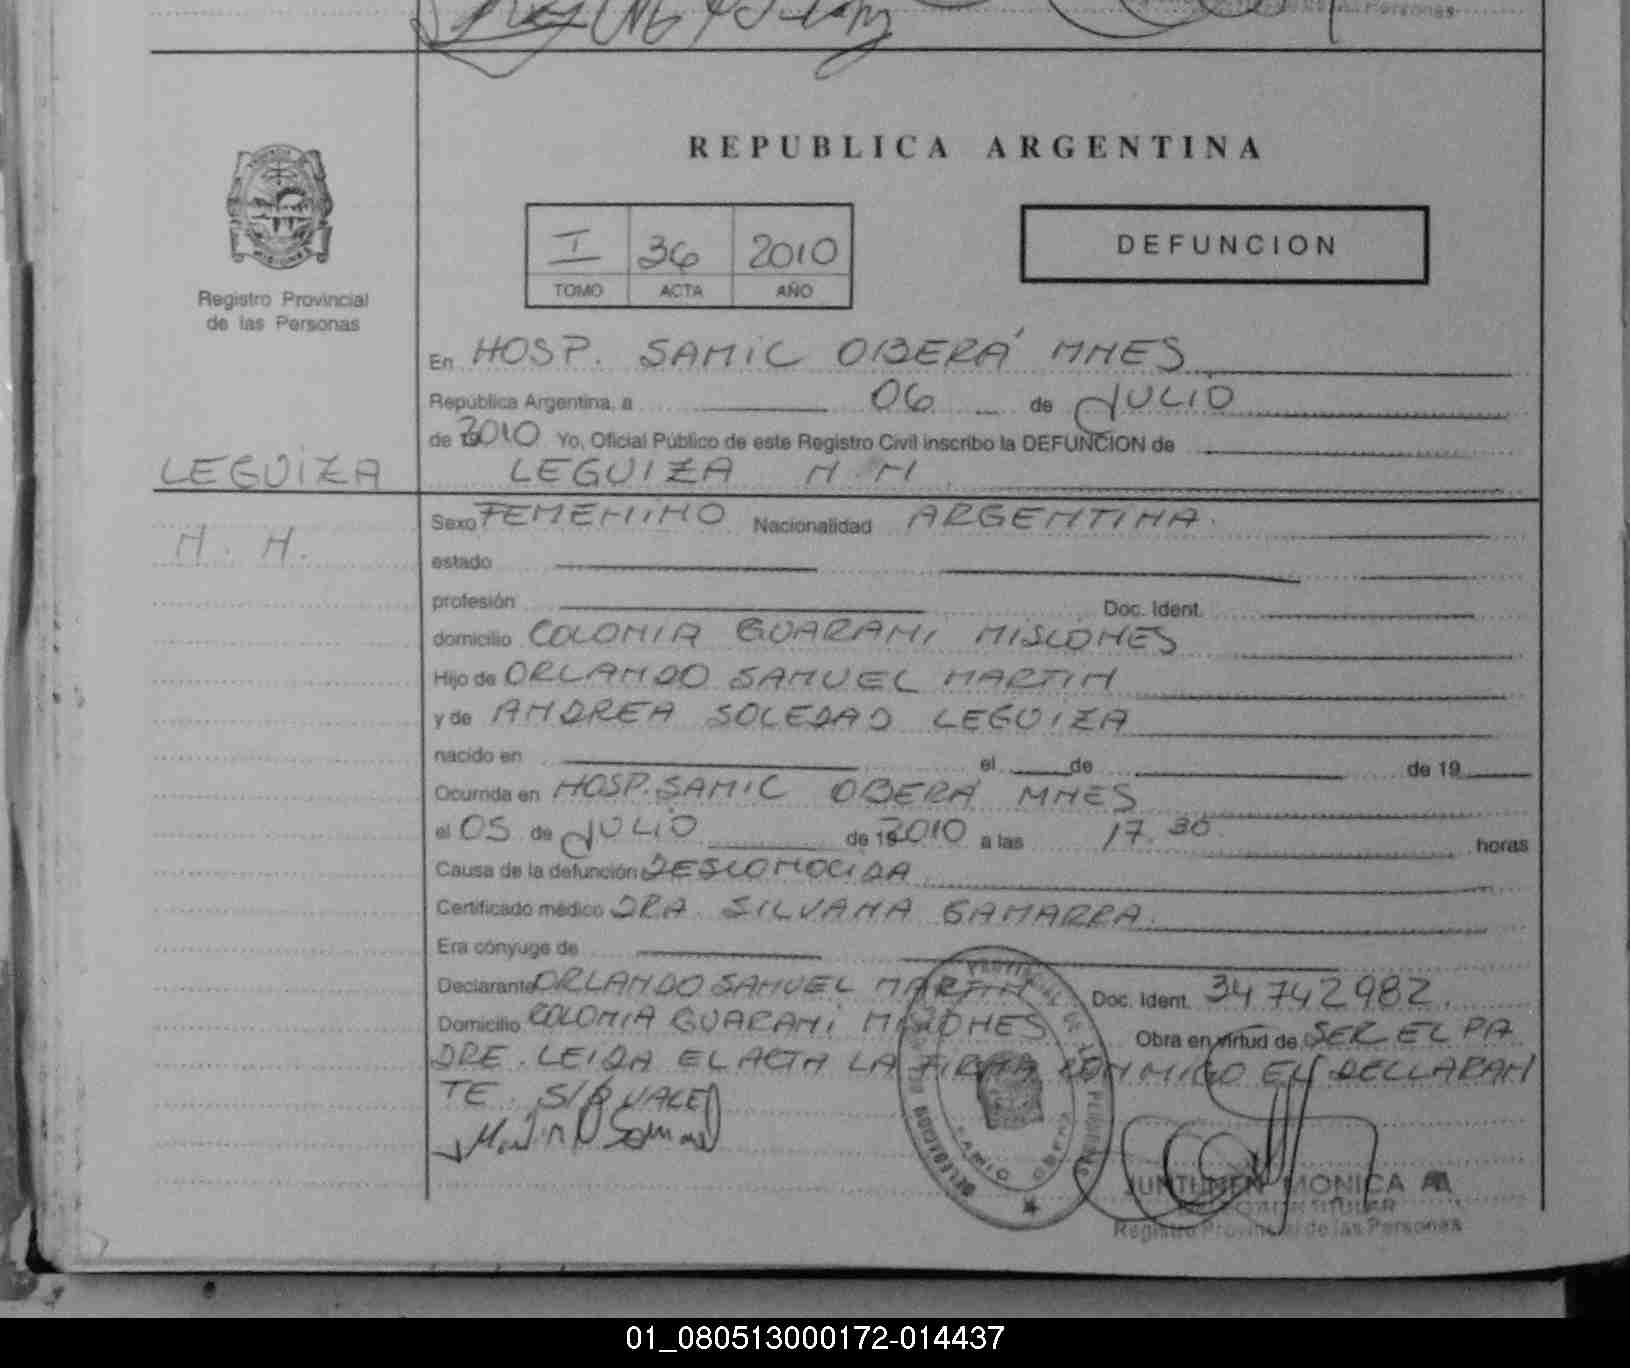 REPUBLICA ARGENTINA
I 36 2010
TOMO ACTA AÑO
DEFUNCION
Registro Provincial
de las Personas
En HOSP. SAMIC OBERÁ MNES
República Argentina, a 06 de JULIO
de 2010 Yo, Oficial Público de este Registro Civil inscribo la DEFUNCION de
LEGUIZA LEGUIZA N.N
N. N.
Sexo FEMENINO Nacionalidad ARGENTINA.
estado
profesión Doc. Ident.
domicilio COLONIA GUARANI MISIONES
Hijo de ORLANDO SAMUEL MARTIN
y de ANDREA SOLEDAD LEGUIZA
nacido en el de de 19
Ocurrida en HOSP. SAMIC OBERÁ MNES
el 05 de JULIO de 2010 a las 17.30 horas
Causa de la defunción DESCONOCIDA
Certificado médico DRA. SILVANA GAMARRA.
Era cónyuge de
Declarante ORLANDO SAMUEL MARTIN Doc. Ident. 34742982.
Domicilio COLONIA GUARANI MISIONES Obra en virtud de SER EL PA
DRE. LEIDA EL ACTA LA FIRMA CONMIGO EL DECLARAN
TE. S/B VALE
JUNTUNEN MONICA
TITULAR
Registro Provincial de las Personas
01_080513000172-014437